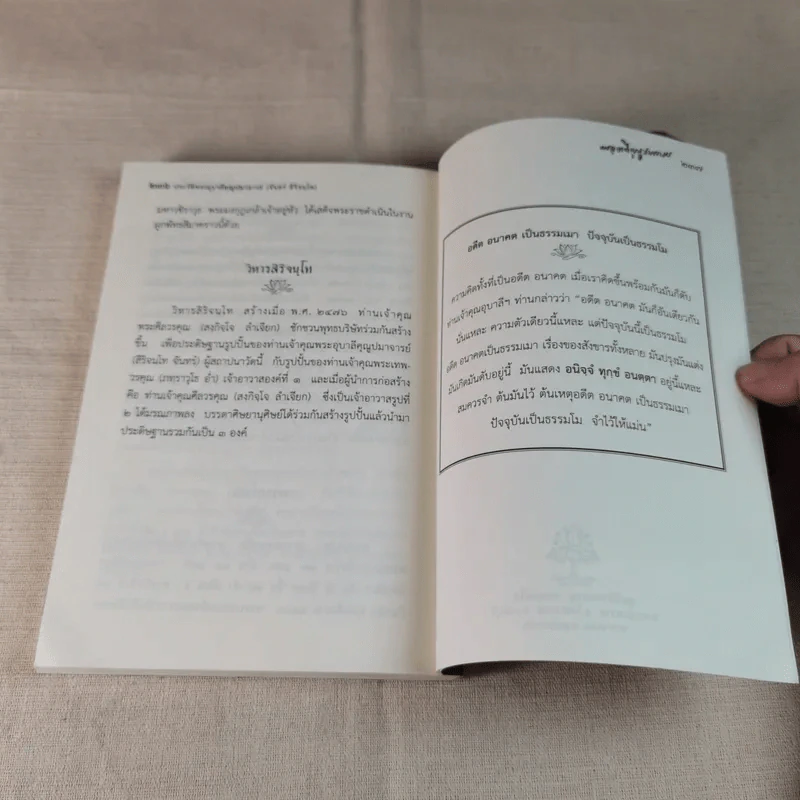 ๒๓๖ ประวัติพระอุบาลีคุณูปมาจารย์ (จันทร์ สิริจนฺโท)
มหาวชิราวุธ พระมงกุฎเกล้าเจ้าอยู่หัว ได้เสด็จพระราชดำเนินในงาน
ผูกพัทธสีมาคราวนี้ด้วย
วิหารสิริจนฺโท
วิหารสิริจนฺโท สร้างเมื่อ พ.ศ. ๒๔๗๖ ท่านเจ้าคุณ
พระศีลวรคุณ (สงฺกิจฺโจ ลำเจียก) ชักชวนพุทธบริษัทร่วมกันสร้าง
ขึ้น เพื่อประดิษฐานรูปปั้นของท่านเจ้าคุณพระอุบาลีคุณูปมาจารย์
(สิริจนฺโท จันทร์) ผู้สถาปนาวัดนี้ กับรูปปั้นของท่านเจ้าคุณพระเทพ-
วรคุณ (ภทฺราวุโธ อ่ำ) เจ้าอาวาสองค์ที่ ๑ และเมื่อผู้นำการก่อสร้าง
คือ ท่านเจ้าคุณศีลวรคุณ (สงฺกิจฺโจ ลำเจียก) ซึ่งเป็นเจ้าอาวาสรูปที่
๒ ได้มรณภาพลง บรรดาศิษยานุศิษย์ได้ร่วมกันสร้างรูปปั้นแล้วนำมา
ประดิษฐานรวมกันเป็น ๓ องค์
๒๓๗
อดีต อนาคต เป็นธรรมเมา ปัจจุบันเป็นธรรมโม
ความคิดทั้งที่เป็นอดีต อนาคต เมื่อเราคิดขึ้นพร้อมกันมันก็ดับ
ท่านเจ้าคุณอุบาลีฯ ท่านกล่าวว่า "อดีต อนาคต มันก็อันเดียวกัน
นั่นแหละ ความตัวเดียวนี้แหละ แต่ปัจจุบันนี้เป็นธรรมโม
อดีต อนาคตเป็นธรรมเมา เรื่องของสังขารทั้งหลาย มันปรุงมันแต่ง
มันเกิดมันดับอยู่นี้ มันแสดง อนิจฺจํ ทุกฺขํ อนตฺตา อยู่นี้แหละ
สมควรจำ ต้นมันไว้ ต้นเหตุอดีต อนาคต เป็นธรรมเมา
ปัจจุบันเป็นธรรมโม จำไว้ให้แม่น"